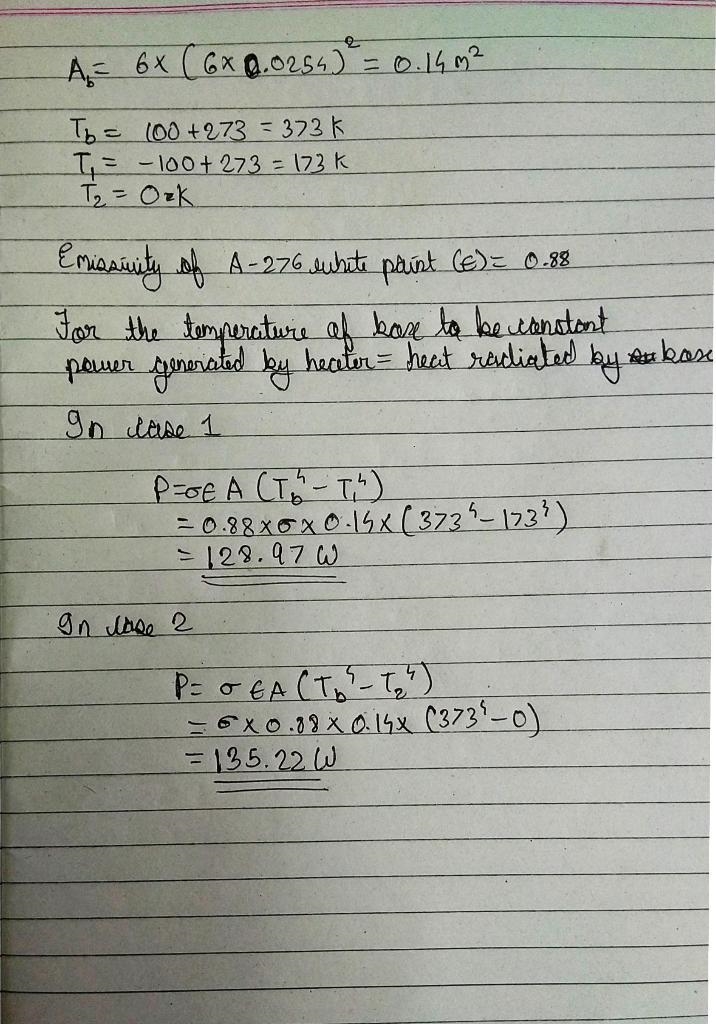 A_b = 6x (6x 0.0254)² = 0.14 m²
T_b = 100 + 273 = 373 K
T₁ = -100 + 273 = 173 K
T₂ = 0 K
Emissivity of A-276 white paint (ϵ) = 0.88
For the temperature of box to be constant
power generated by heater = heat radiated by box
In case 1
P = σϵ A (T_b⁴ - T₁⁴)
= 0.88 x σ x 0.14 x (373⁴ - 173⁴)
= 128.97 W
In case 2
P = σ ϵA (T_b⁴ - T₂⁴)
= σ x 0.88 x 0.14 x (373⁴ - 0)
= 135.22 W